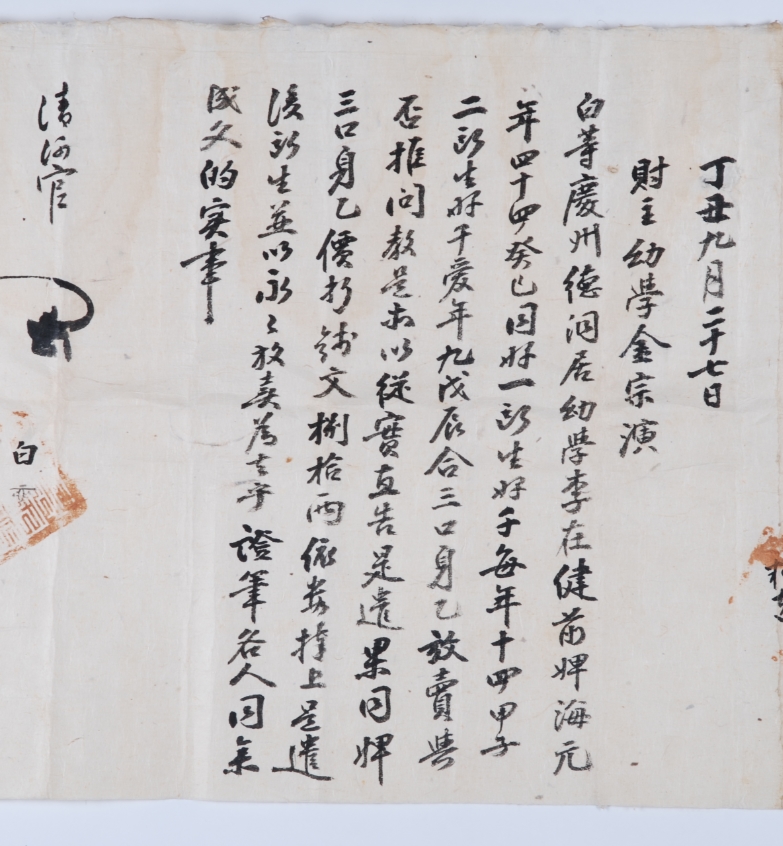 丁丑九月二十七日
財主幼學金宗演
白等慶州德洞居幼學李在健前婢海元
年四十四癸巳同婢一所生婢千每年十四甲子
二所生婢千愛年九戊辰合三口身乙放賣與
否推問敎是臥以從實直告是遣果同婢
三口身乙價折錢文捌拾兩依數捧上是遣
後所生並以永〻放賣爲去乎證筆各人同參
成文的實事
清河官
白